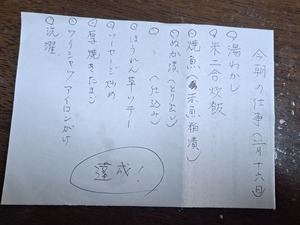 今朝の仕事(二月十六日)
○湯わかし
○米二合炊飯
○焼魚(赤魚粕漬)
○ぬか漬(とり出し)
○〃(仕込み)
○ほうれん草ソテー
○ソーセージ炒め
○厚焼きたまご
○ワイシャツアイロンがけ
○洗濯
達成!